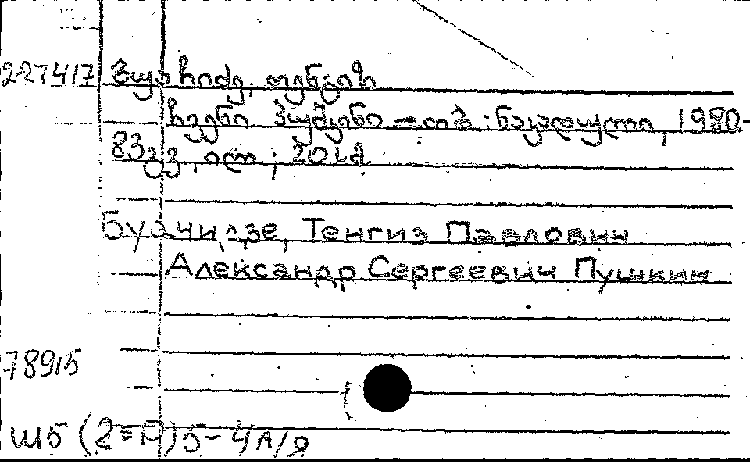 227417 ბუაჩიძე, თენგიზ
ჩვენი პუშკინი — თბ.: ნაკადული, 1980-
83გვ, ილ; 20 სმ
Буачидзе, Тенгиз Павлович
Александр Сергеевич Пушкин
78915
Ш5 (2=Р) 5-4А/Я